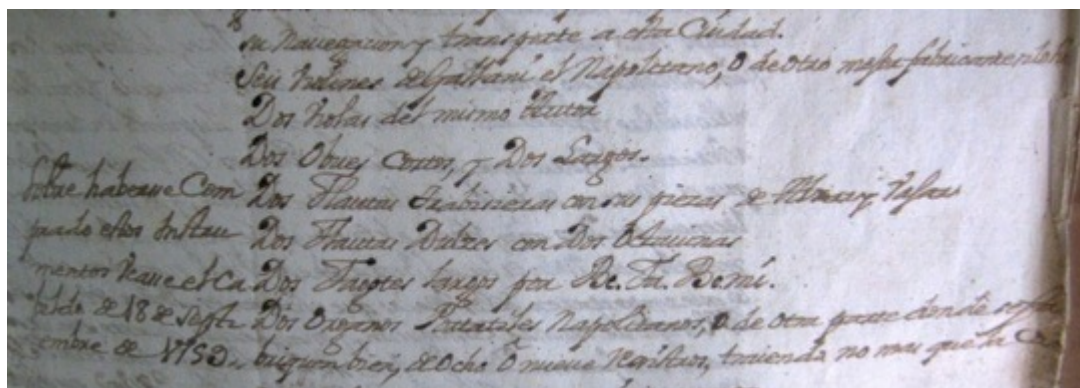 su Navegacion y transporte a esta Ciudad.
Seis violines de Gallani el Napolitano, o de otro mejor fabricante
Dos violas del mismo Autor
Dos Obues Cortos, y Dos Largos.
Dos Flautas Trabisieras con sus piezas de
Dos Flautas Dulzes con Dos Octavinas
Dos Fagotes largos por Be. Fa. Bemi.
Dos Organos Portatiles Napolitanos, o de otra parte donde se
briquen bien, de ocho o nueve registros, traiendo no mas que la
Sobre haberse Com
prado estos Instru
mentos vease el Ca
bildo de 18 de Septi
embre de 1759.